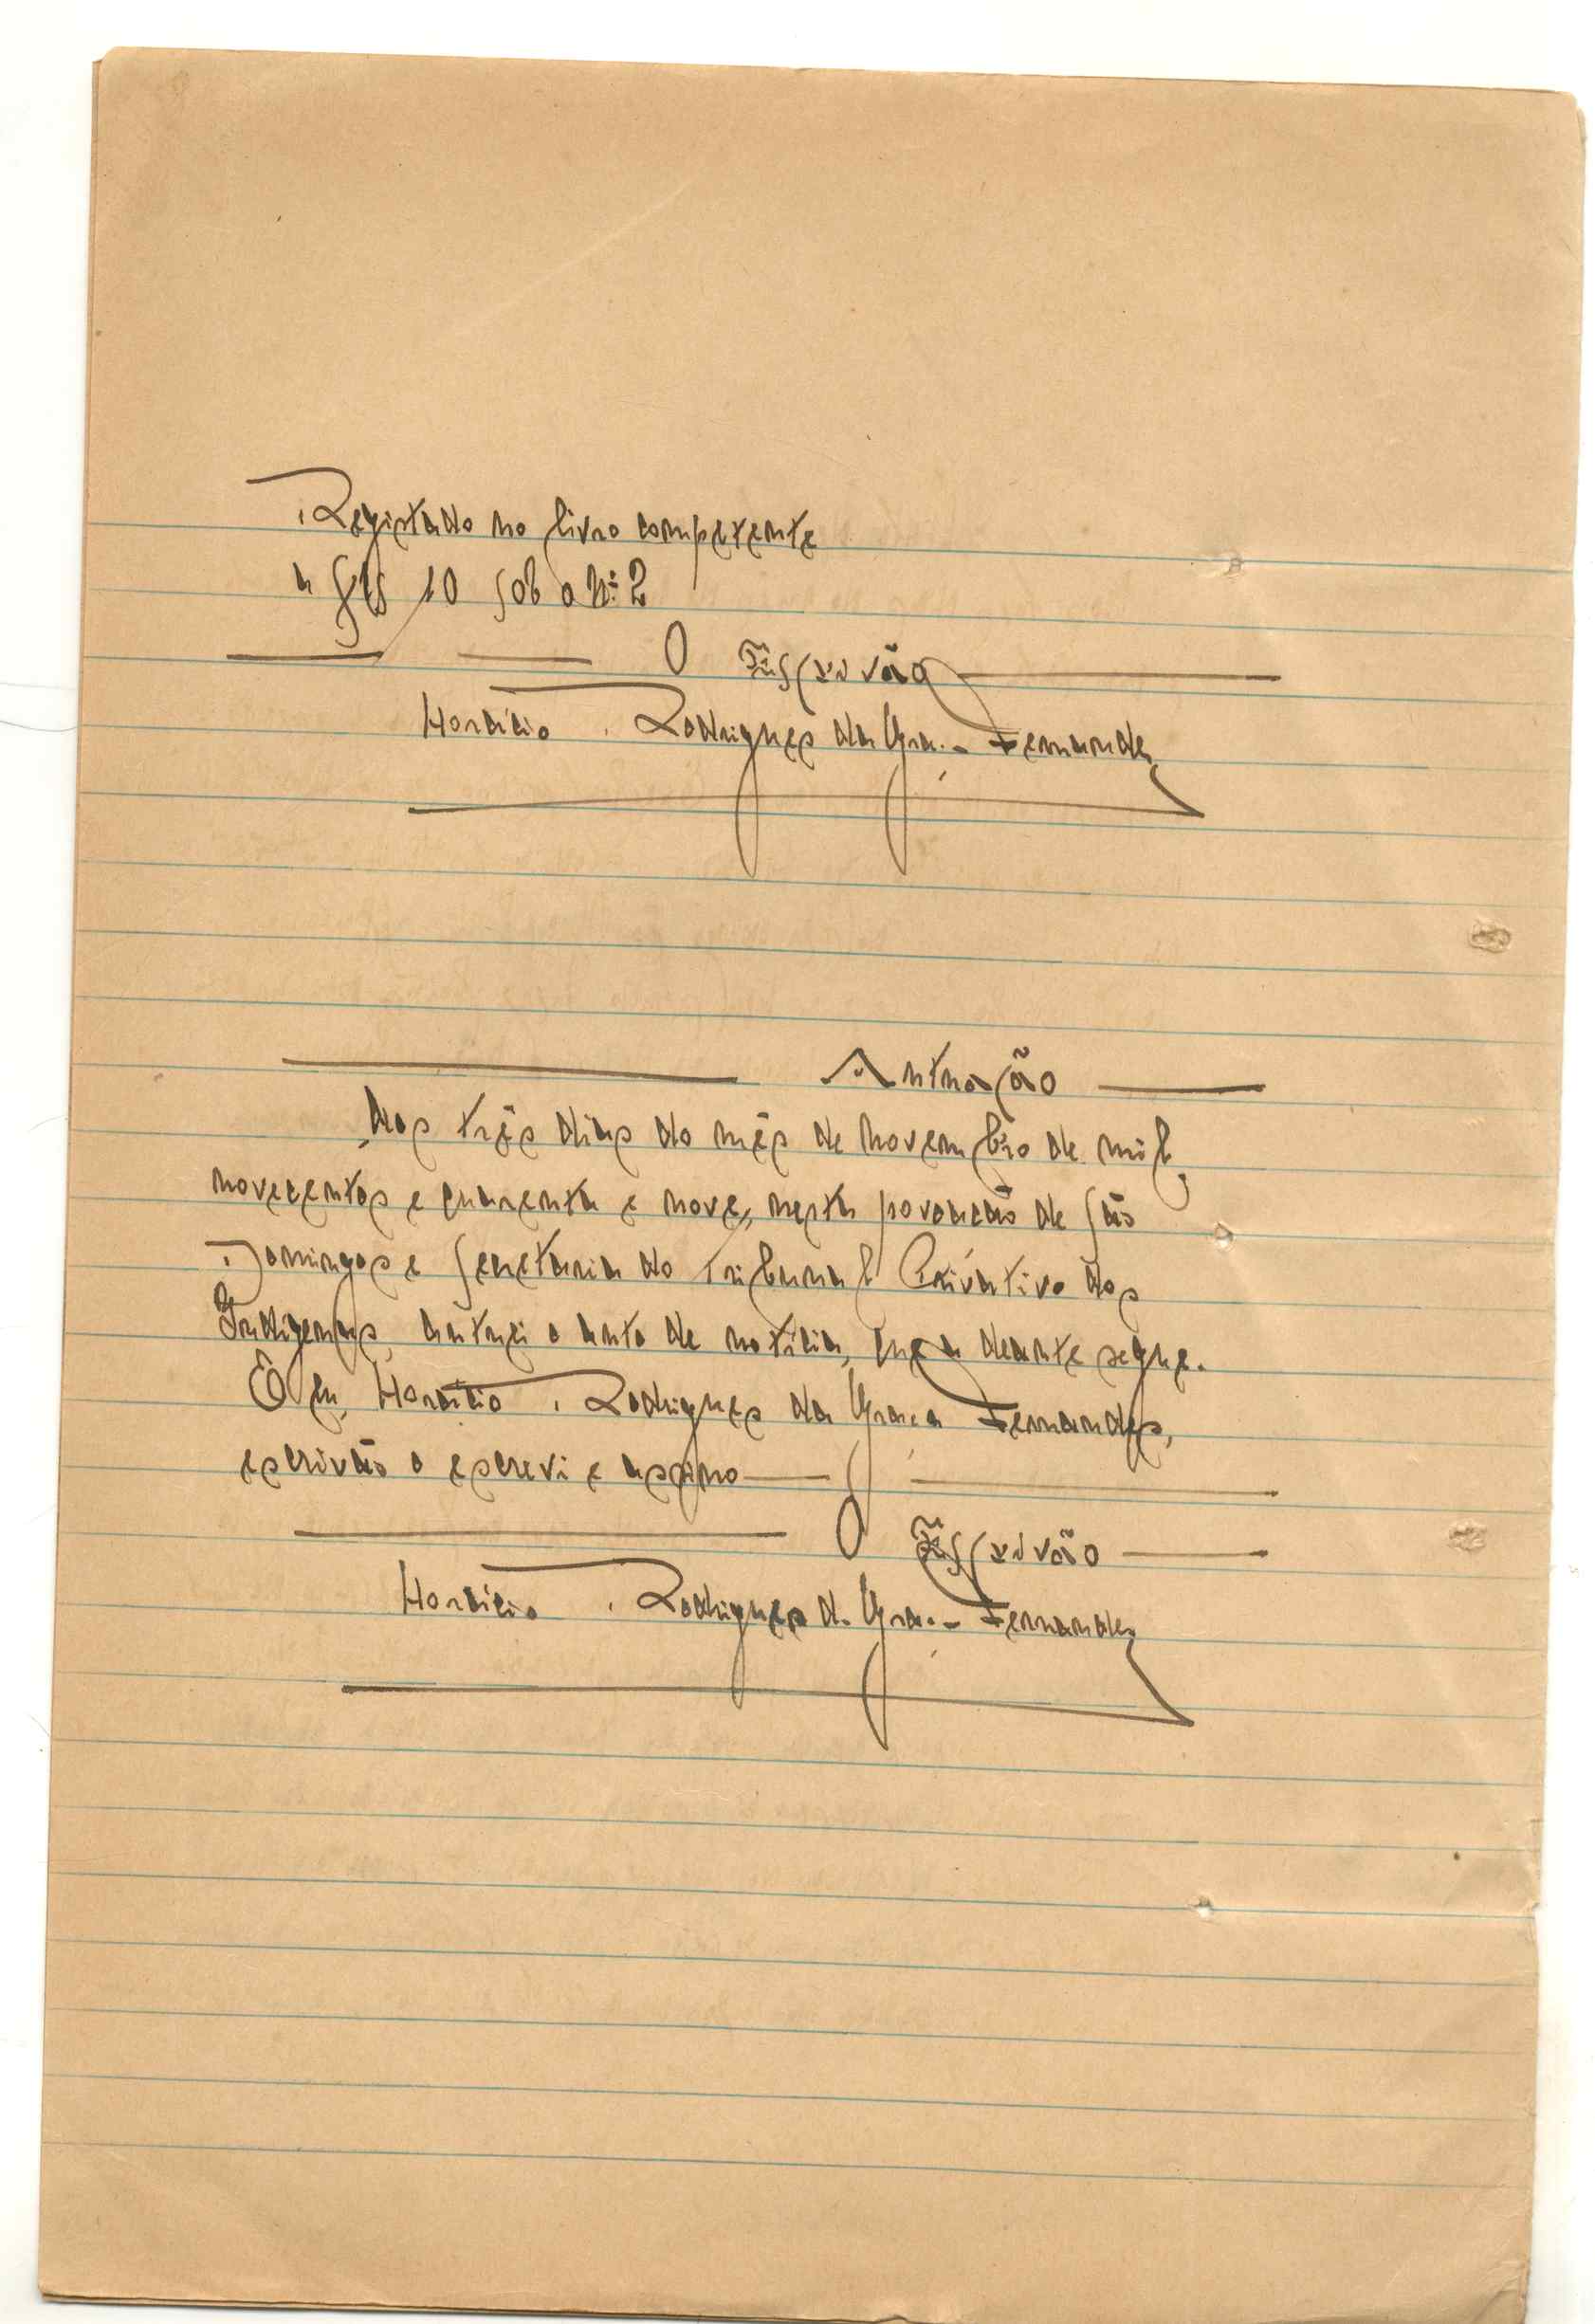 Registado no livro competente
a fls 10 sob o Nº 2
O Escrivão
Horácio Rodrigues da Graça Fernandes
Autuação
Aos três dias do mês de Novembro de mil
novecentos e quarenta e nove, nesta povoação de São
Domingos e Secretaria do Tribunal Privativo dos
Indígenas, autuei o auto de notícia, que a deante segue.
E eu, Horácio Rodrigues da Graça Fernandes,
escrivão o escrevi e assino
O Escrivão
Horácio Rodrigues da Graça Fernandes